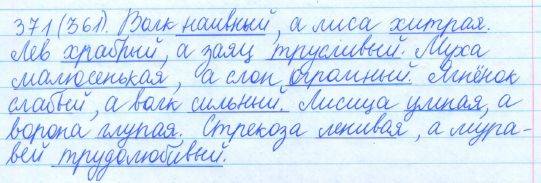 371(361). Волк наивный, а лиса хитрая.
Лев храбрый, а заяц трусливый. Муха
малюсенькая, а слон огромный. Ягнёнок
слабый, а волк сильный. Лисица умная, а
ворона глупая. Стрекоза ленивая, а мура-
вей трудолюбивый.